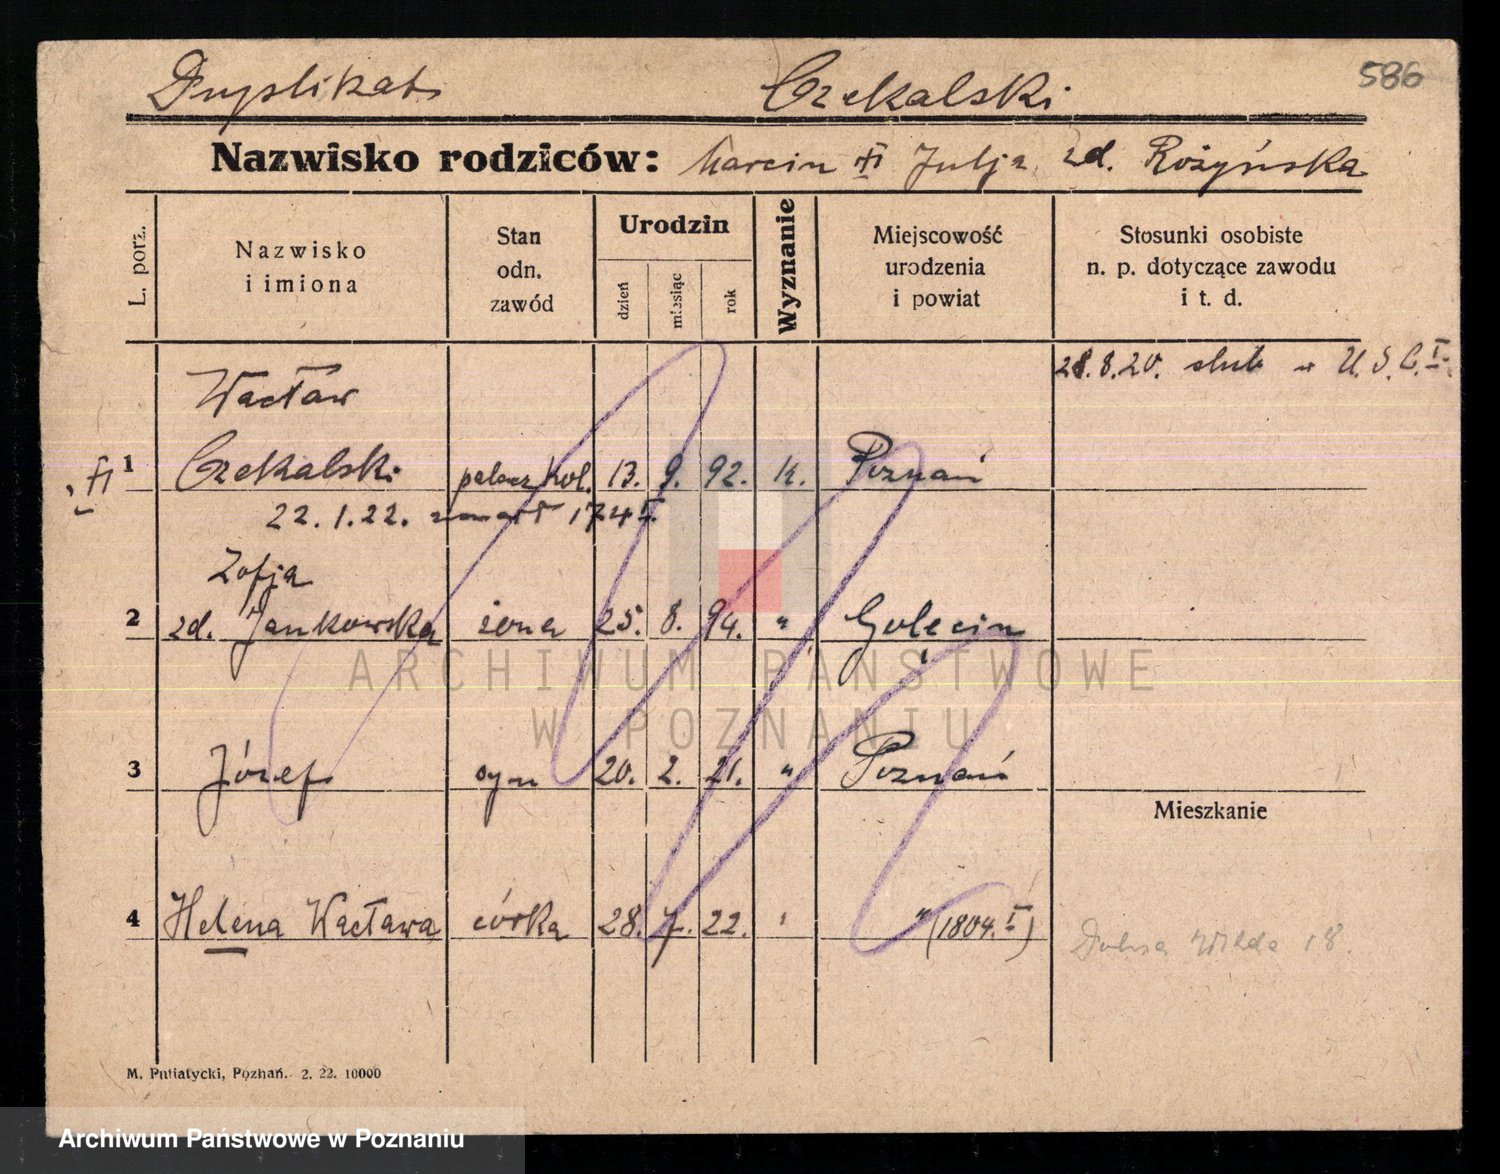 586
Duplikat Czekalski
Nazwisko rodziców: Marcin i Julja zd. Rożyńska
L. porz.
Nazwisko
i imiona
Stan
odn.
zawód
Urodzin
dzień
miesiąc
rok
Wyznanie
Miejscowość
urodzenia
i powiat
Stosunki osobiste
n. p. dotyczące zawodu
i t. d.
28.8.20. ślub w U.S.C. I.
Wacław
1 Czekalski palacz kol. 13. 9. 92. k. Poznań
22.1.22. zmarł 174 I.
Zofja
2 zd. Jankowska żona 25. 8. 94. " Golęcin
3 Józef syn 20. 2. 21. " Poznań
Mieszkanie
4 Helena Wacława córka 28. 7. 22. " " (1804. I)
Dolna Wilda 18.
M. Putiatycki, Poznań. 2. 22. 10000
ARCHIWUM PAŃSTWOWE
W POZNANIU
Archiwum Państwowe w Poznaniu